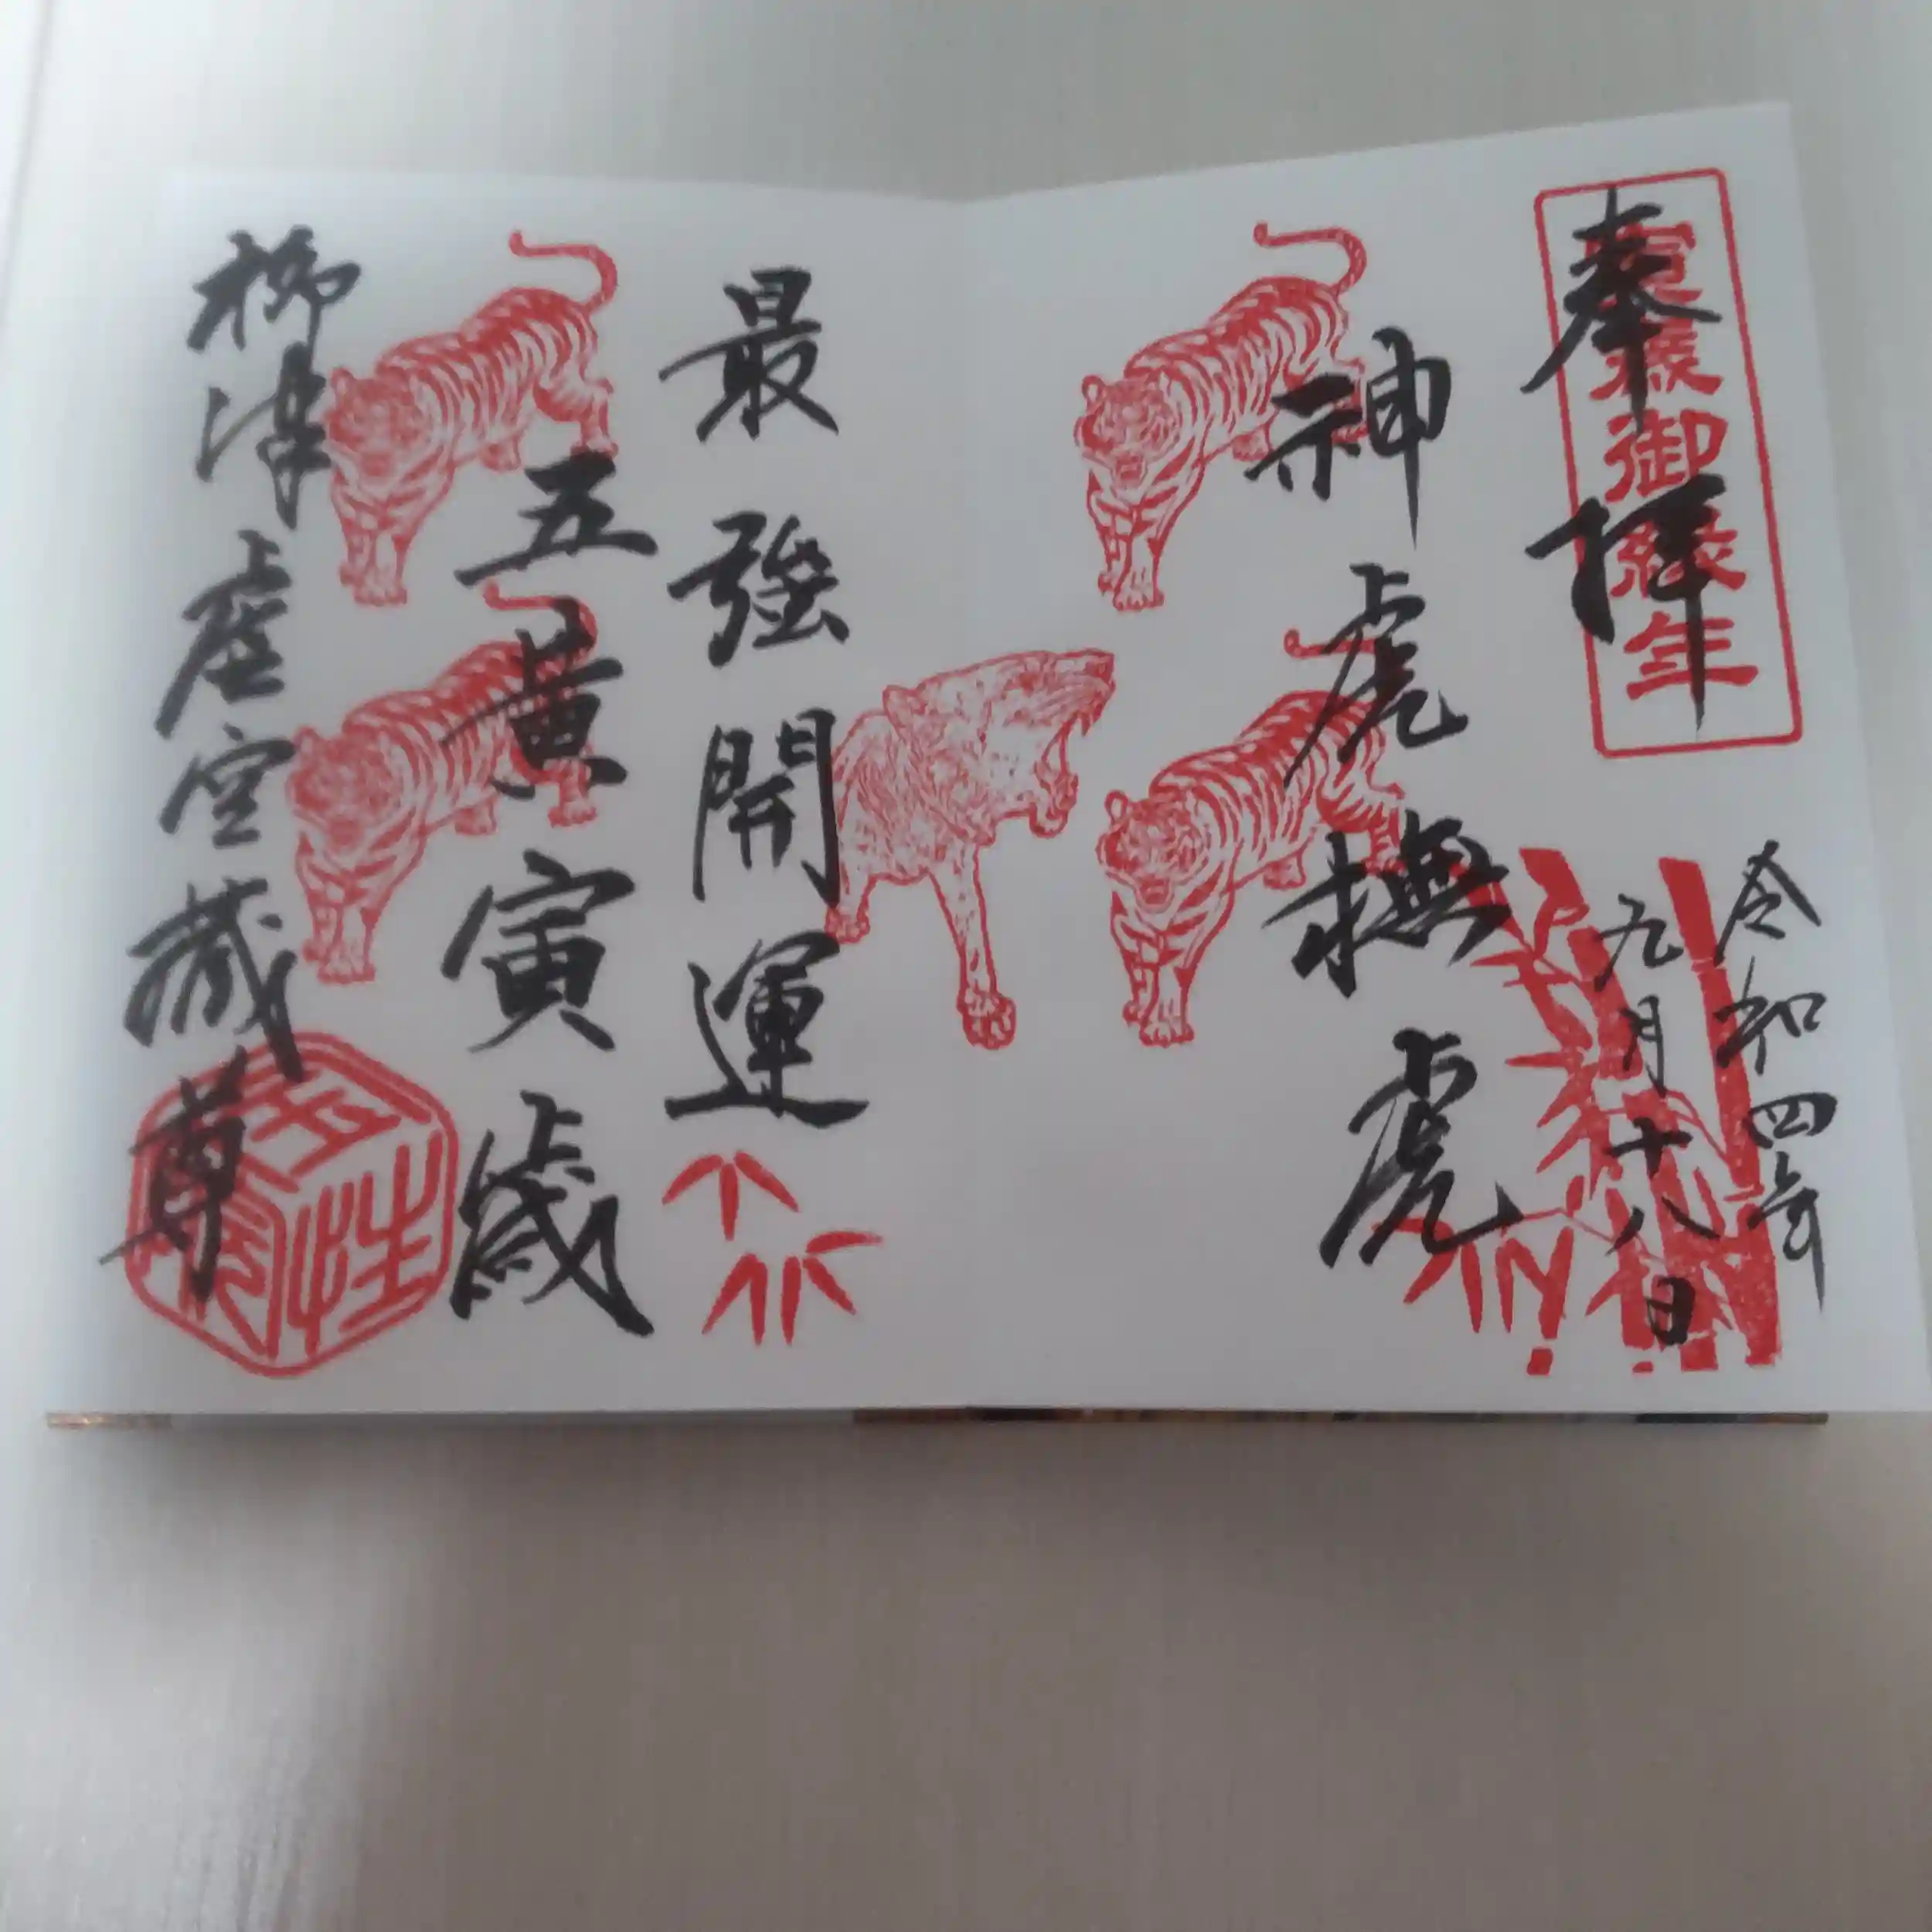 奉拝
寅歳御縁年
令和四年
九月十八日
神虎撫虎
最強開運
五黄寅歳
柳津虚空蔵尊